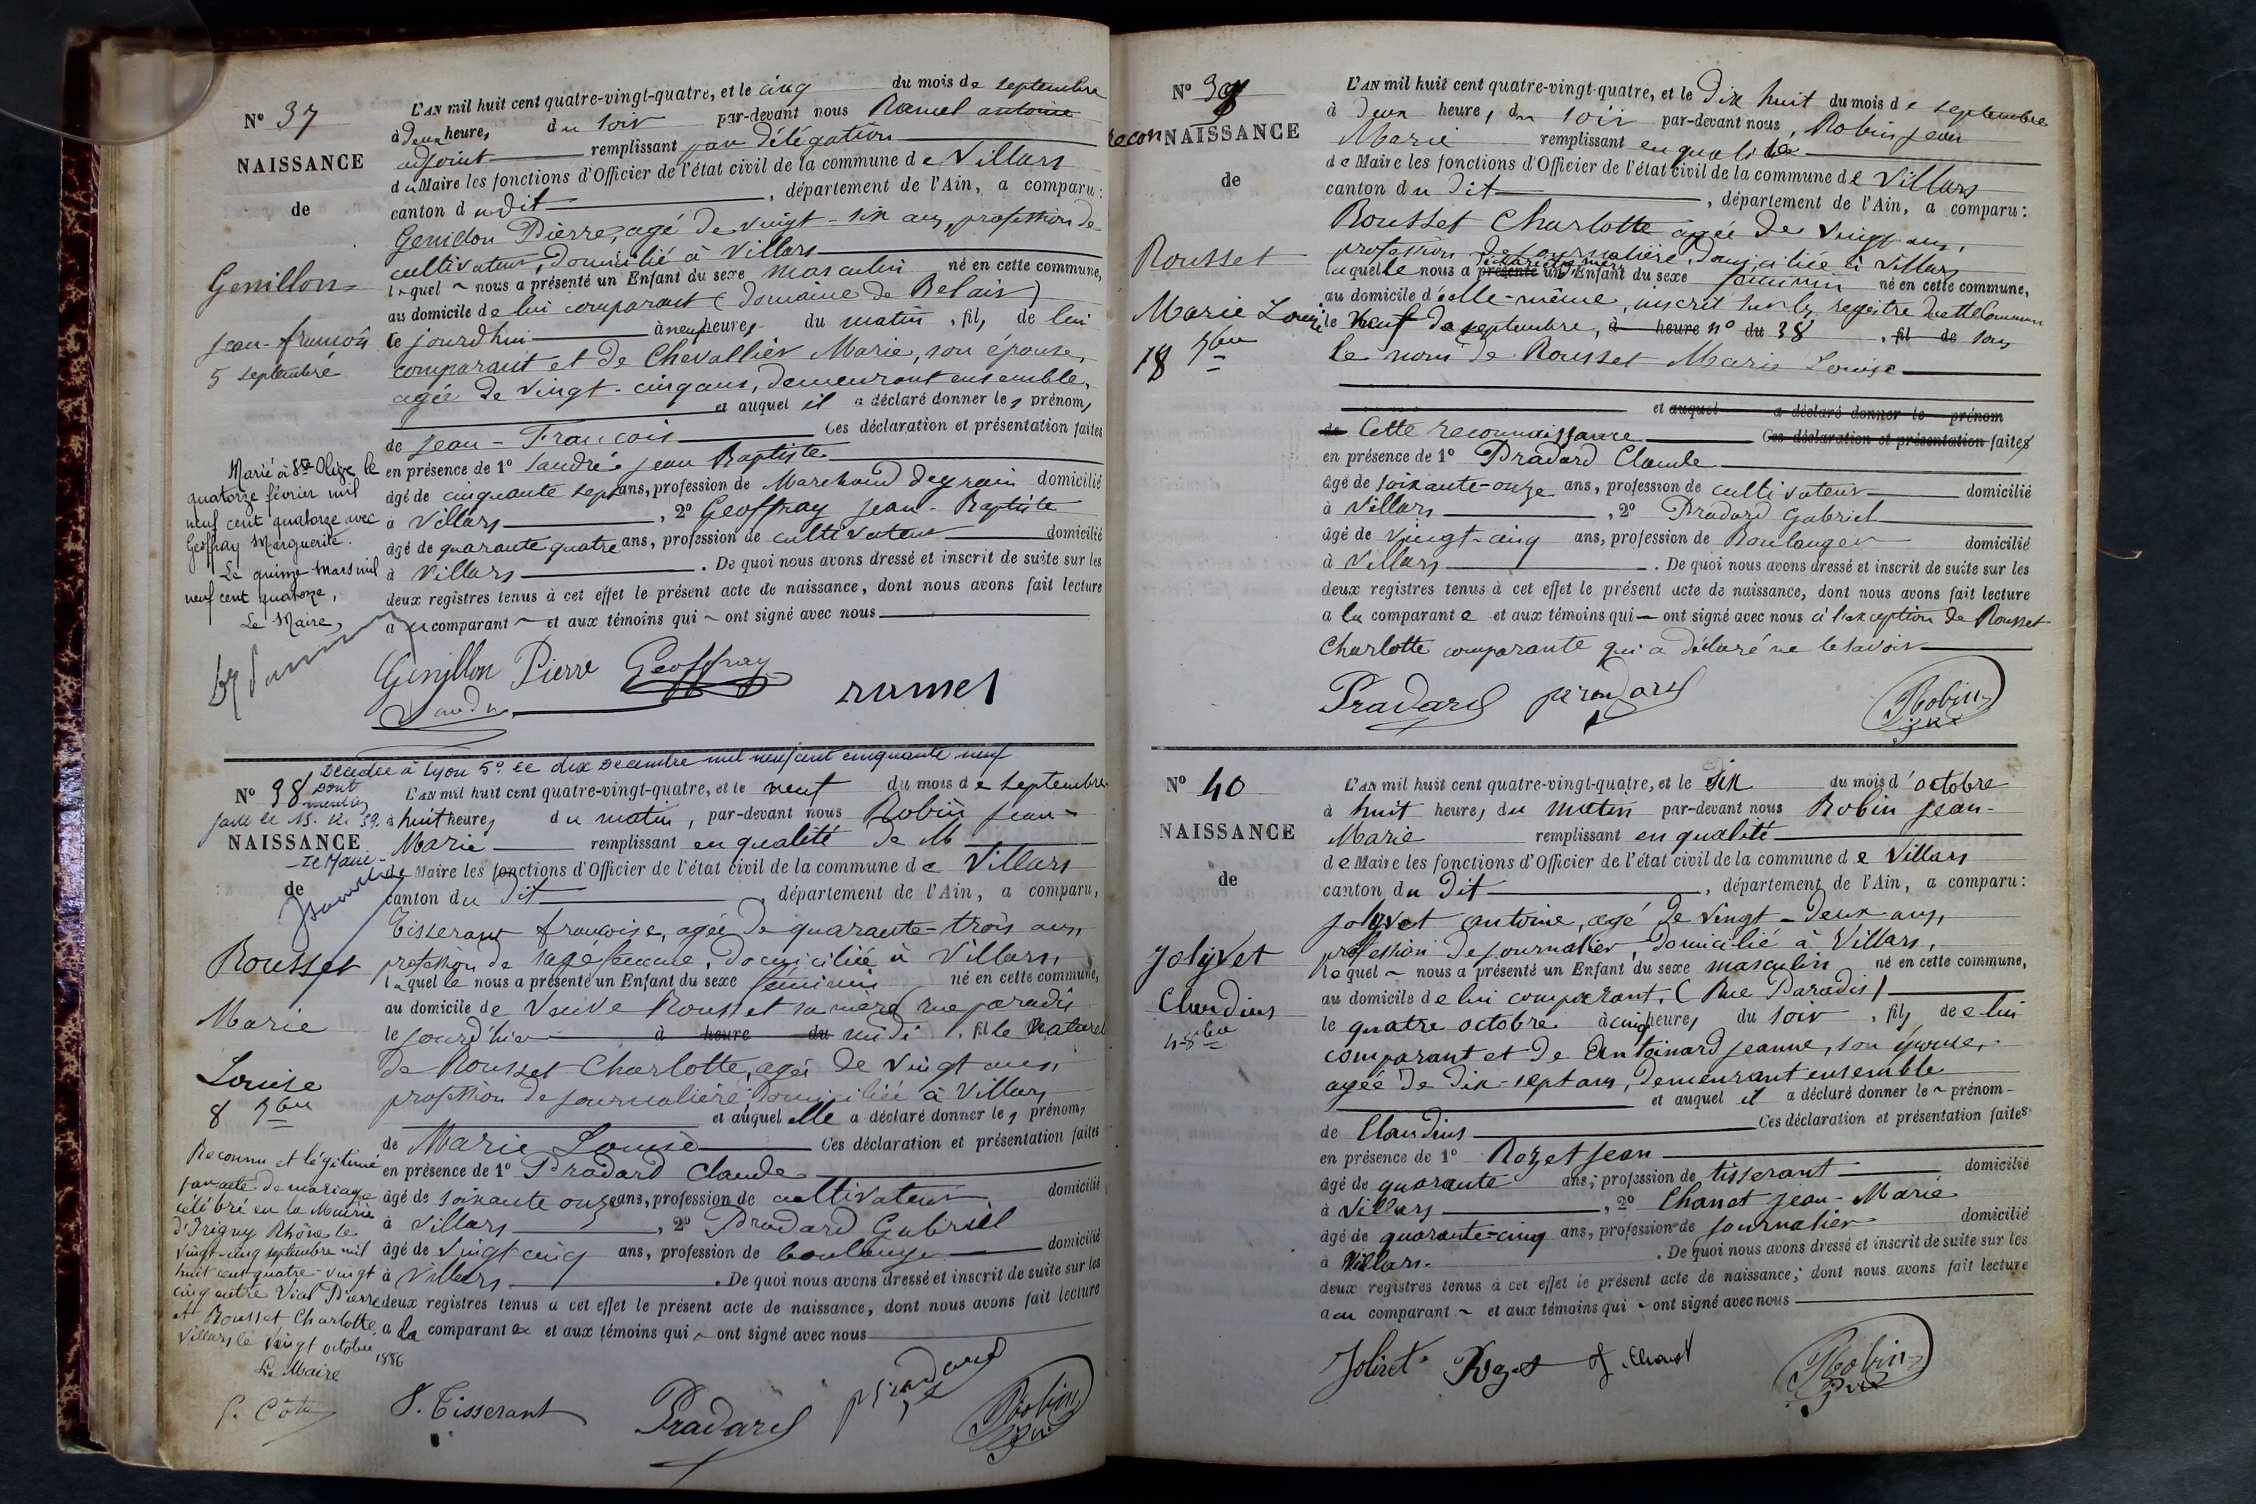 N° 37
NAISSANCE
de
Genillon
Jean-françois
5 septembre
L'AN mil huit cent quatre-vingt-quatre, et le cinq du mois de septembre
à deux heures du soir par-devant nous Ramel antoine
adjoint remplissant par délégation
du Maire les fonctions d'Officier de l'état civil de la commune de Villars
canton dudit, département de l'Ain, a comparu:
Genillon Pierre, agé de vingt-six ans, profession de
cultivateur, domicilié à Villars
lequel nous a présenté un Enfant du sexe masculin né en cette commune,
au domicile de lui comparant (domaine de Belair)
le jourd'hui à neuf heures du matin, fils de lui
comparant et de Chevallier Marie, son épouse,
agée de vingt-cinq ans, demeurant ensemble,
et auquel il a déclaré donner les prénoms
de Jean-François Ces déclaration et présentation faites
en présence de 1° Jandré Jean Baptiste
âgé de cinquante sept ans, profession de Marchand de grain domicilié
à Villars, 2° Geoffray Jean-Baptiste
âgé de quarante quatre ans, profession de cultivateur domicilié
à Villars. De quoi nous avons dressé et inscrit de suite sur les
deux registres tenus à cet effet le présent acte de naissance, dont nous avons fait lecture
au comparant et aux témoins qui ont signé avec nous
Marié à Ste Olive le
quatorze février mil
neuf cent quatorze avec
Geoffray Marguerite.
Le quinze Mars mil
neuf cent quatorze,
Le Maire,
Genillon Pierre Geoffray
ramel
Décédée à Lyon 5° le dix Decembre mil neuf cent cinquante neuf
N° 38 dont
mention
faite le 15. 12. 59.
NAISSANCE
Le Maire
de
Rousset
Marie
Louise
8 7bre
L'AN mil huit cent quatre-vingt-quatre, et le neuf du mois de septembre
à huit heures du matin, par-devant nous Robin Jean-
Marie remplissant en qualité de M
de Maire les fonctions d'Officier de l'état civil de la commune de Villars
canton du dit, département de l'Ain, a comparu,
Tisserant françoise, agée de quarante-trois ans,
profession de sage femme, domiciliée à Villars,
laquelle nous a présenté un Enfant du sexe féminin né en cette commune,
au domicile de Veuve Rousset sa mère (rue paradis
le jourd'hier à heure du midi, fille naturel
de Rousset Charlotte, agée de vingt ans,
profession de journalière domiciliée à Villars
et auquel elle a déclaré donner les prénoms
de Marie Louise Ces déclaration et présentation faites
en présence de 1° Pradard Claude
âgé de soixante onze ans, profession de cultivateur domicilié
à Villars, 2° Pradard Gabriel
âgé de vingt cinq ans, profession de boulanger domicilié
à Villars. De quoi nous avons dressé et inscrit de suite sur les
deux registres tenus à cet effet le présent acte de naissance, dont nous avons fait lecture
a la comparante et aux témoins qui ont signé avec nous
Reconnu et légitimé
par acte de mariage
célébré en la Mairie
d'Irigny Rhône le
vingt-cinq septembre mil
huit cent quatre-vingt
cinq entre Vial Pierre
et Rousset Charlotte,
Villars le vingt octobre
1886
Le Maire
P. Côte
F. Tisserant Pradard pradard Robin
recon
N° 39
NAISSANCE
de
Rousset
Marie Louise
18 7bre
L'AN mil huit cent quatre-vingt-quatre, et le dix huit du mois de septembre
à deux heures, du soir par-devant nous, Robin Jean
Marie remplissant en qualité
de Maire les fonctions d'Officier de l'état civil de la commune de Villars
canton du dit, département de l'Ain, a comparu:
Rousset Charlotte agée de vingt ans,
profession de journalière, domiciliée à Villars
laquelle nous a présenté un Enfant du sexe féminin né en cette commune,
au domicile d'elle-même, inscrit sur les registre de cette Commune
le neuf de septembre, à heure n° du 38, fil de sous
le nom de Rousset Marie Louise
et auquel a déclaré donner le prénom
de Cette reconnaissance Ces déclaration et présentation faites
en présence de 1° Pradard Claude
âgé de soixante-onze ans, profession de cultivateur domicilié
à Villars, 2° Pradard Gabriel
âgé de vingt-cinq ans, profession de Boulanger domicilié
à Villars. De quoi nous avons dressé et inscrit de suite sur les
deux registres tenus à cet effet le présent acte de naissance, dont nous avons fait lecture
a la comparante et aux témoins qui ont signé avec nous à l'exception de Rousset
Charlotte comparante qui a déclaré ne le savoir
Pradard pradard Robin
N° 40
NAISSANCE
de
Jolyvet
Claudius
4 8bre
L'AN mil huit cent quatre-vingt-quatre, et le six du mois d'octobre
à huit heures du matin par-devant nous Robin Jean-
Marie remplissant en qualité
de Maire les fonctions d'Officier de l'état civil de la commune de Villars
canton du dit, département de l'Ain, a comparu:
Jolyvet antoine, agé de vingt-deux ans,
profession de journalier domicilié à Villars,
lequel nous a présenté un Enfant du sexe masculin né en cette commune,
au domicile de lui comparant, (Rue Paradis)
le quatre octobre à cinq heures du soir, fils de lui
comparant et de Antoinard Jeanne, son épouse,
agée de dix-sept ans, demeurant ensemble
et auquel il a déclaré donner le prénom
de Claudius Ces déclaration et présentation faites
en présence de 1° Rozet Jean
âgé de quarante ans, profession de tisserant domicilié
à Villars, 2° Chanet Jean-Marie
âgé de quarante-cinq ans, profession de journalier domicilié
à Villars. De quoi nous avons dressé et inscrit de suite sur les
deux registres tenus à cet effet le présent acte de naissance, dont nous avons fait lecture
a au comparant et aux témoins qui ont signé avec nous
Jolivet Rozet J. Chanet Robin